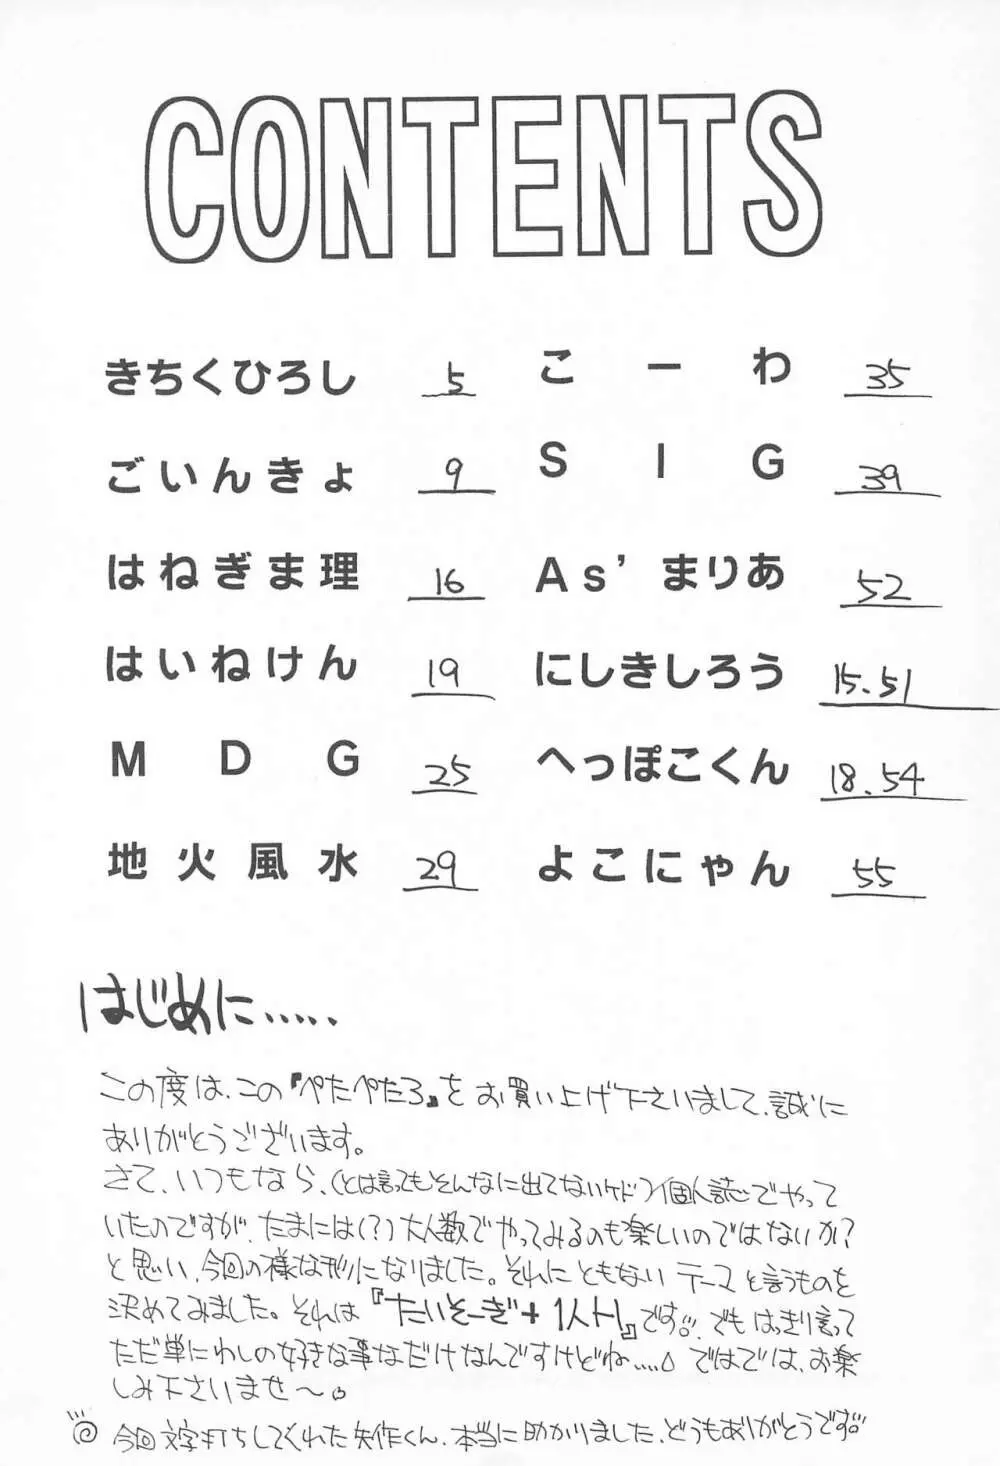 CONTENTS
きちくひろし 5
ごいんきょ 9
はねぎま理 16
はいねけん 19
MDG 25
地火風水 29
こーわ 35
SIG 39
As'まりあ 52
にしきしろう 15.51
へっぽこくん 18.54
よこにゃん 55
はじめに.....
この度は、この『ぺたぺたろ』をお買い上げ下さいまして、誠に
ありがとうございます。
さて、いつもなら、(とは言ってもそんなに出てないケド)個人誌でやって
いたのですが、たまには(?)大人数でやってみるのも楽しいのではないか?
と思い、今回の様な形になりました。それにともない テーマと言うものを
決めてみました。それは『たいそーぎ+1人』です。でもはっきり言って
ただ単にわしの好きな事なだけなんですけどね....ではでは、お楽
しみ下さいませ〜
今回文字打ちしてくれた矢作くん、本当に助かりました、どうもありがとうです。